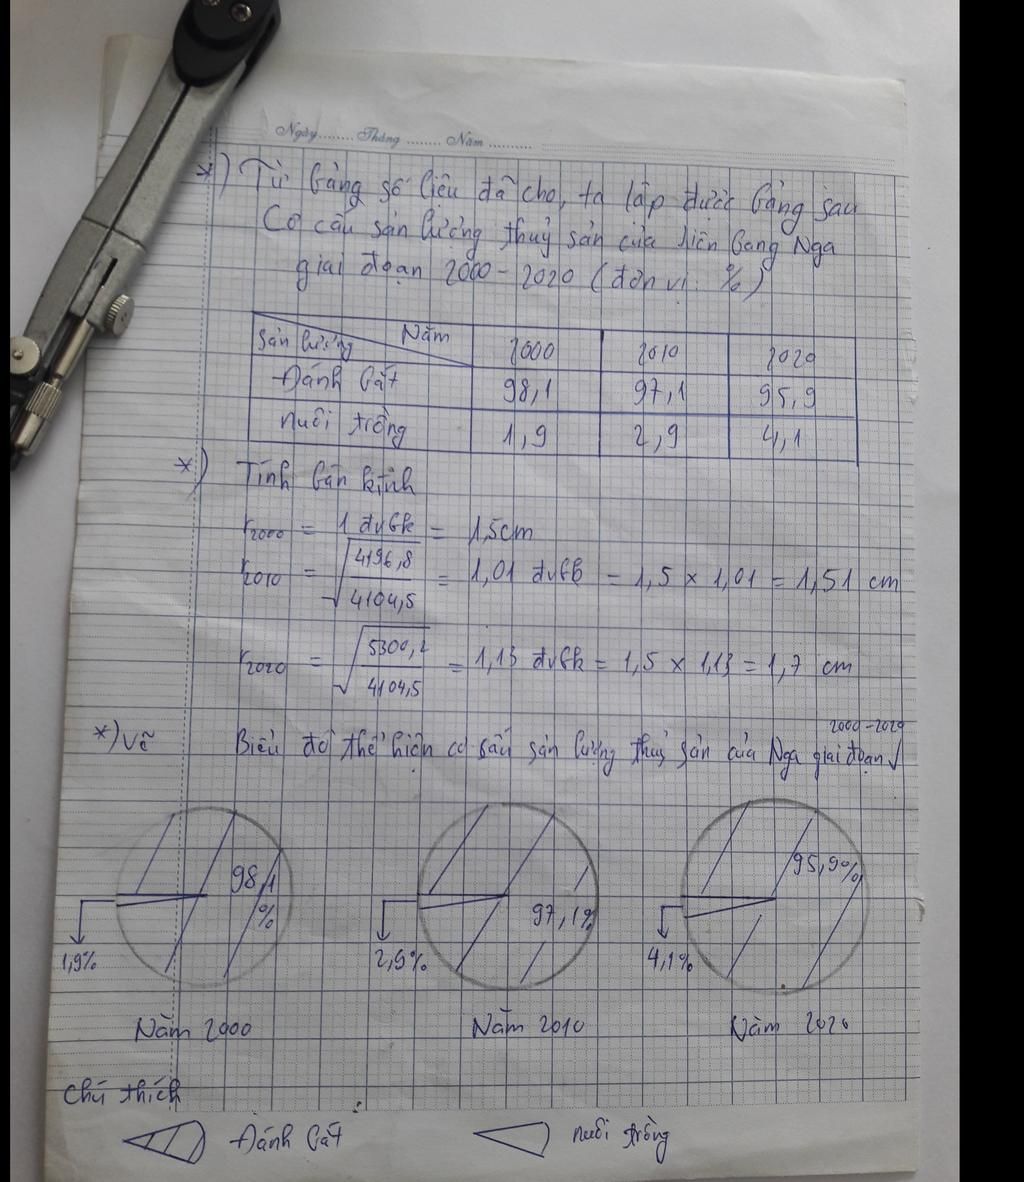 Ngày........ Tháng ........ Năm ..........
*) Từ bảng số liệu đã cho, ta lập được bảng sau
Cơ cấu sản lượng thuỷ sản của liên bang Nga
giai đoạn 2000 - 2020 (đơn vị: %)
Sản lượng Năm 2000 2010 2020
Đánh bắt 98,1 97,1 95,9
nuôi trồng 1,9 2,9 4,1
*) Tính bán kính
r2000 = 1 đvbk = 1,5cm
r2010 = √4196,8/4104,5 = 1,01 đvbk = 1,5 × 1,01 = 1,51 cm
r2020 = √5300,2/4104,5 = 1,13 đvbk = 1,5 × 1,13 = 1,7 cm
2000 - 2020
*) Vẽ Biểu đồ thể hiện cơ cấu sản lượng thuỷ sản của Nga giai đoạn √
98,1 % 97,1% 95,9%
1,9% 2,9% 4,1%
Năm 2000 Năm 2010 Năm 2020
Chú thích
Đánh bắt nuôi trồng